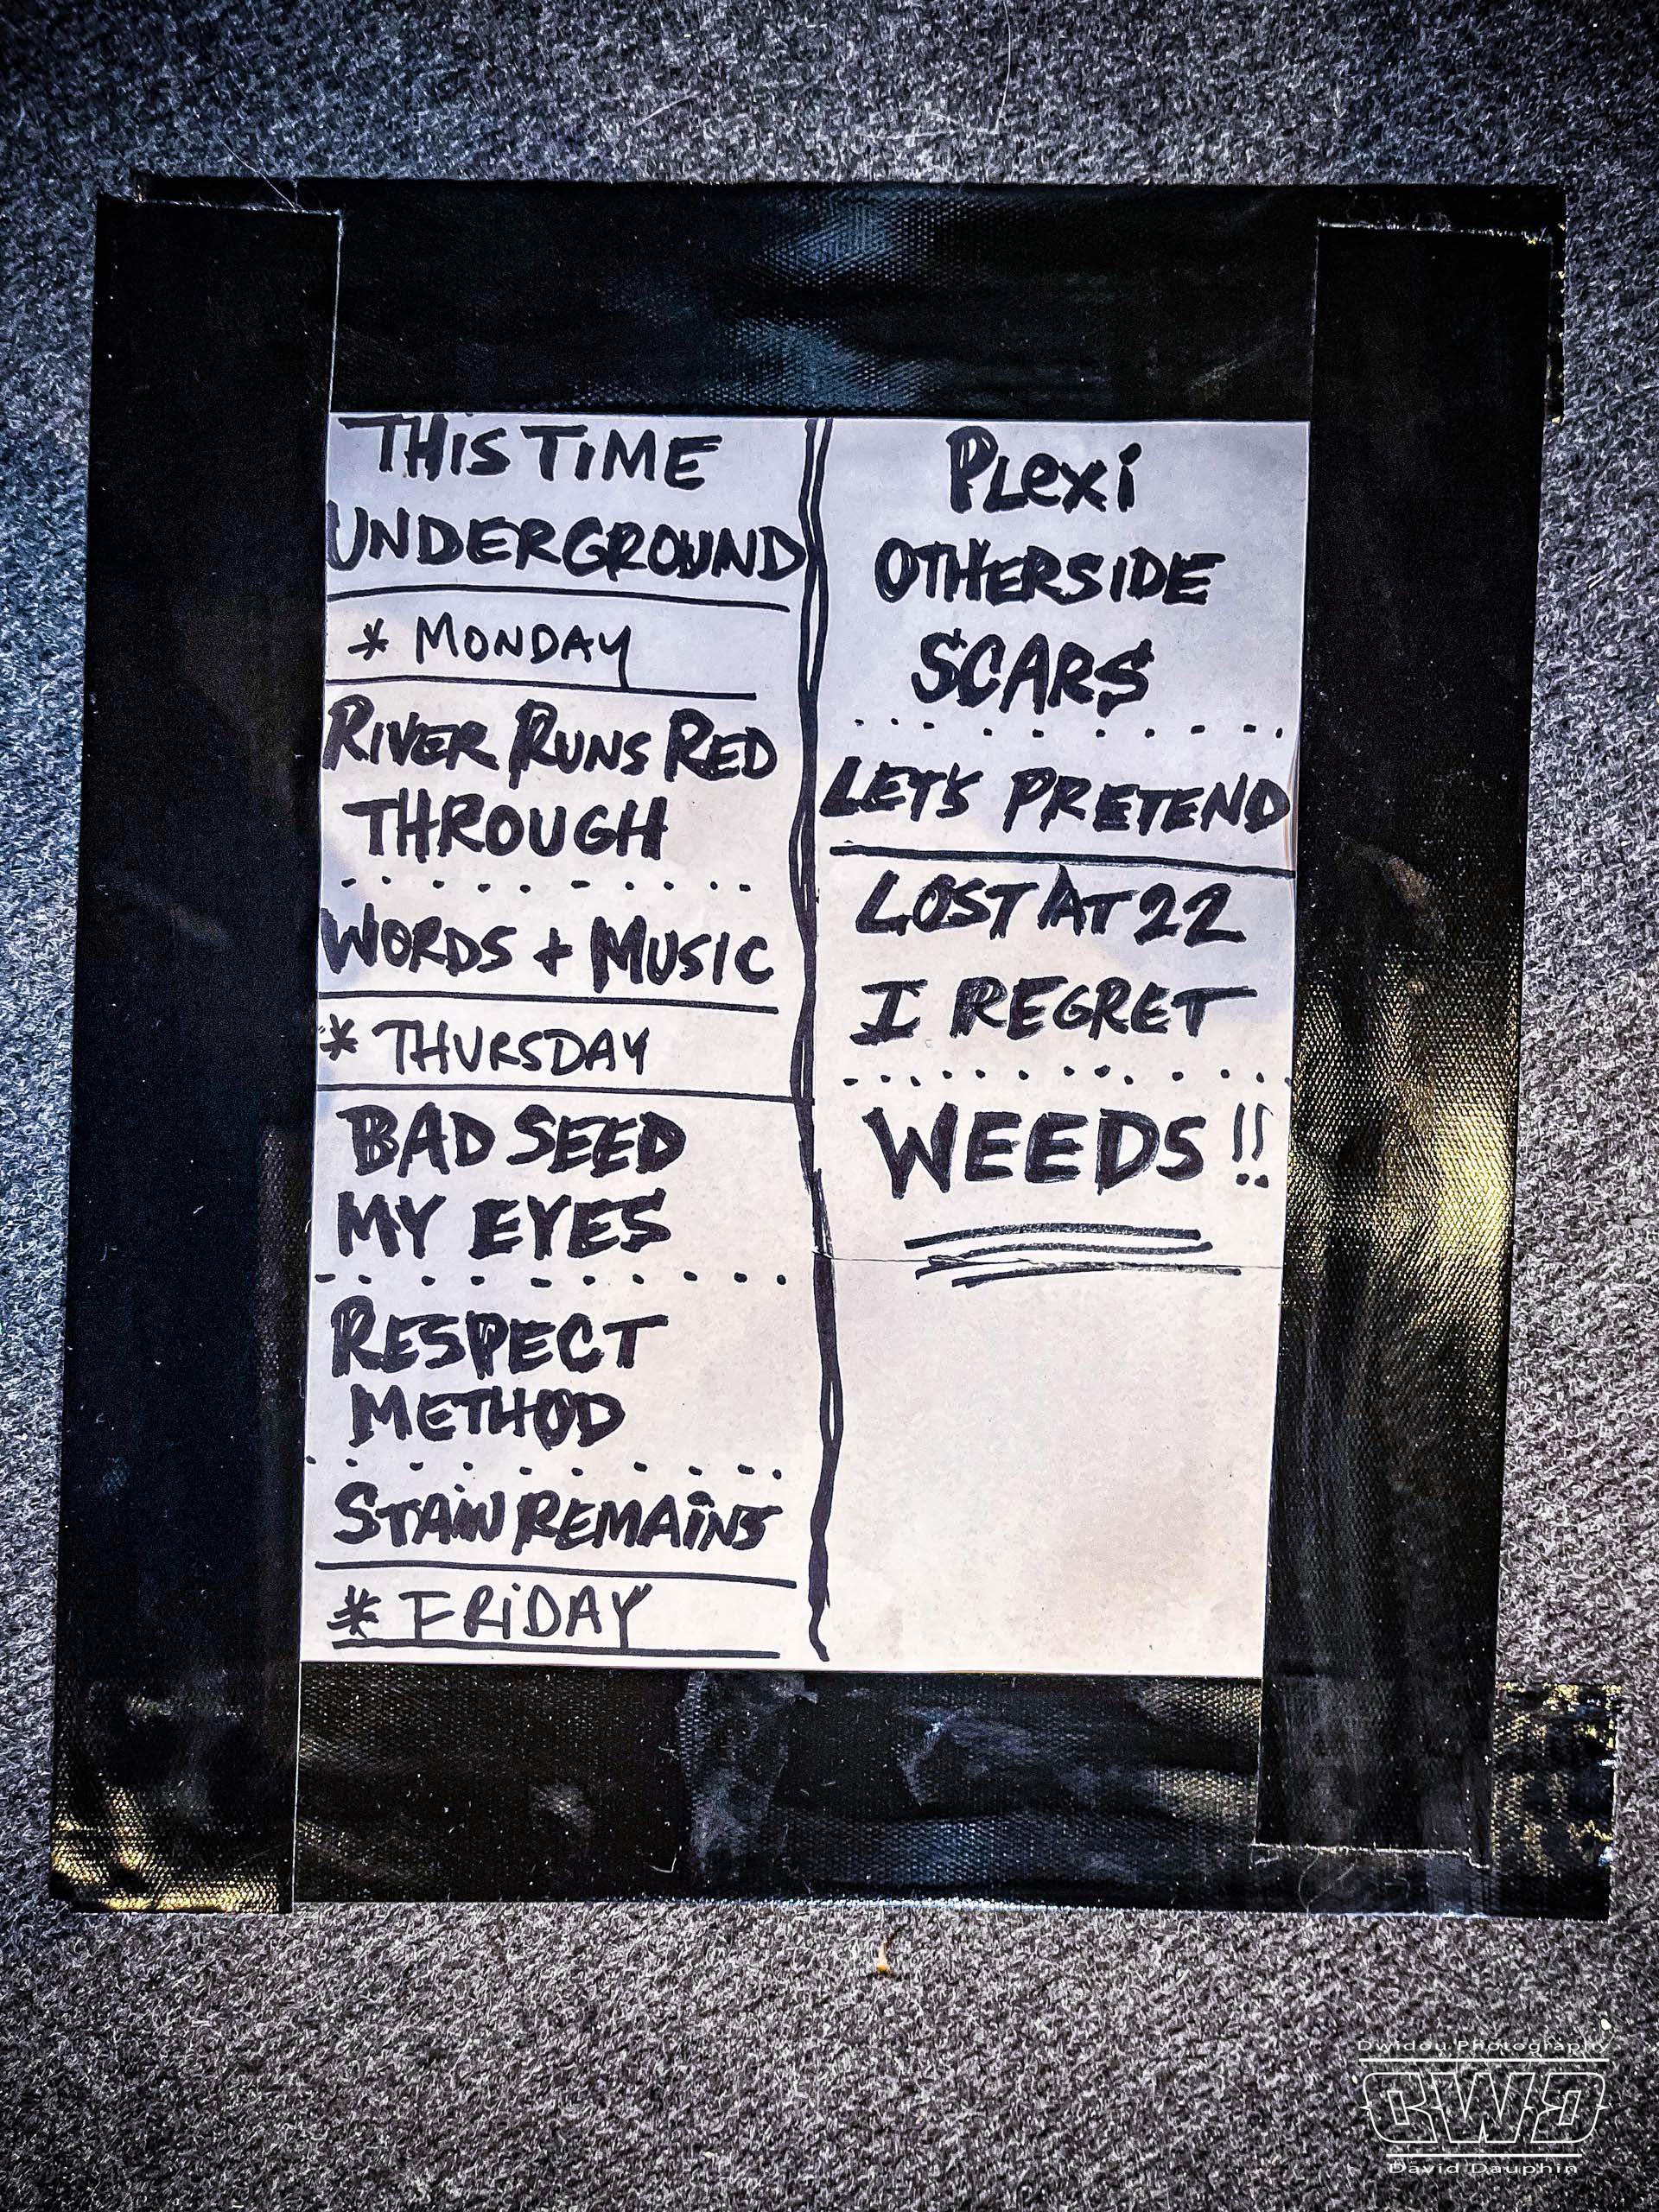 THIS TIME
UNDERGROUND
* MONDAY
RIVER RUNS RED
THROUGH
WORDS + MUSIC
* THURSDAY
BAD SEED
MY EYES
RESPECT
METHOD
STAIN REMAINS
* FRIDAY
PLexi
OTHERSIDE
SCARS
LET'S PRETEND
LOST AT 22
I REGRET
WEEDS !!
Dwidou Photography
DWD
David Dauphin